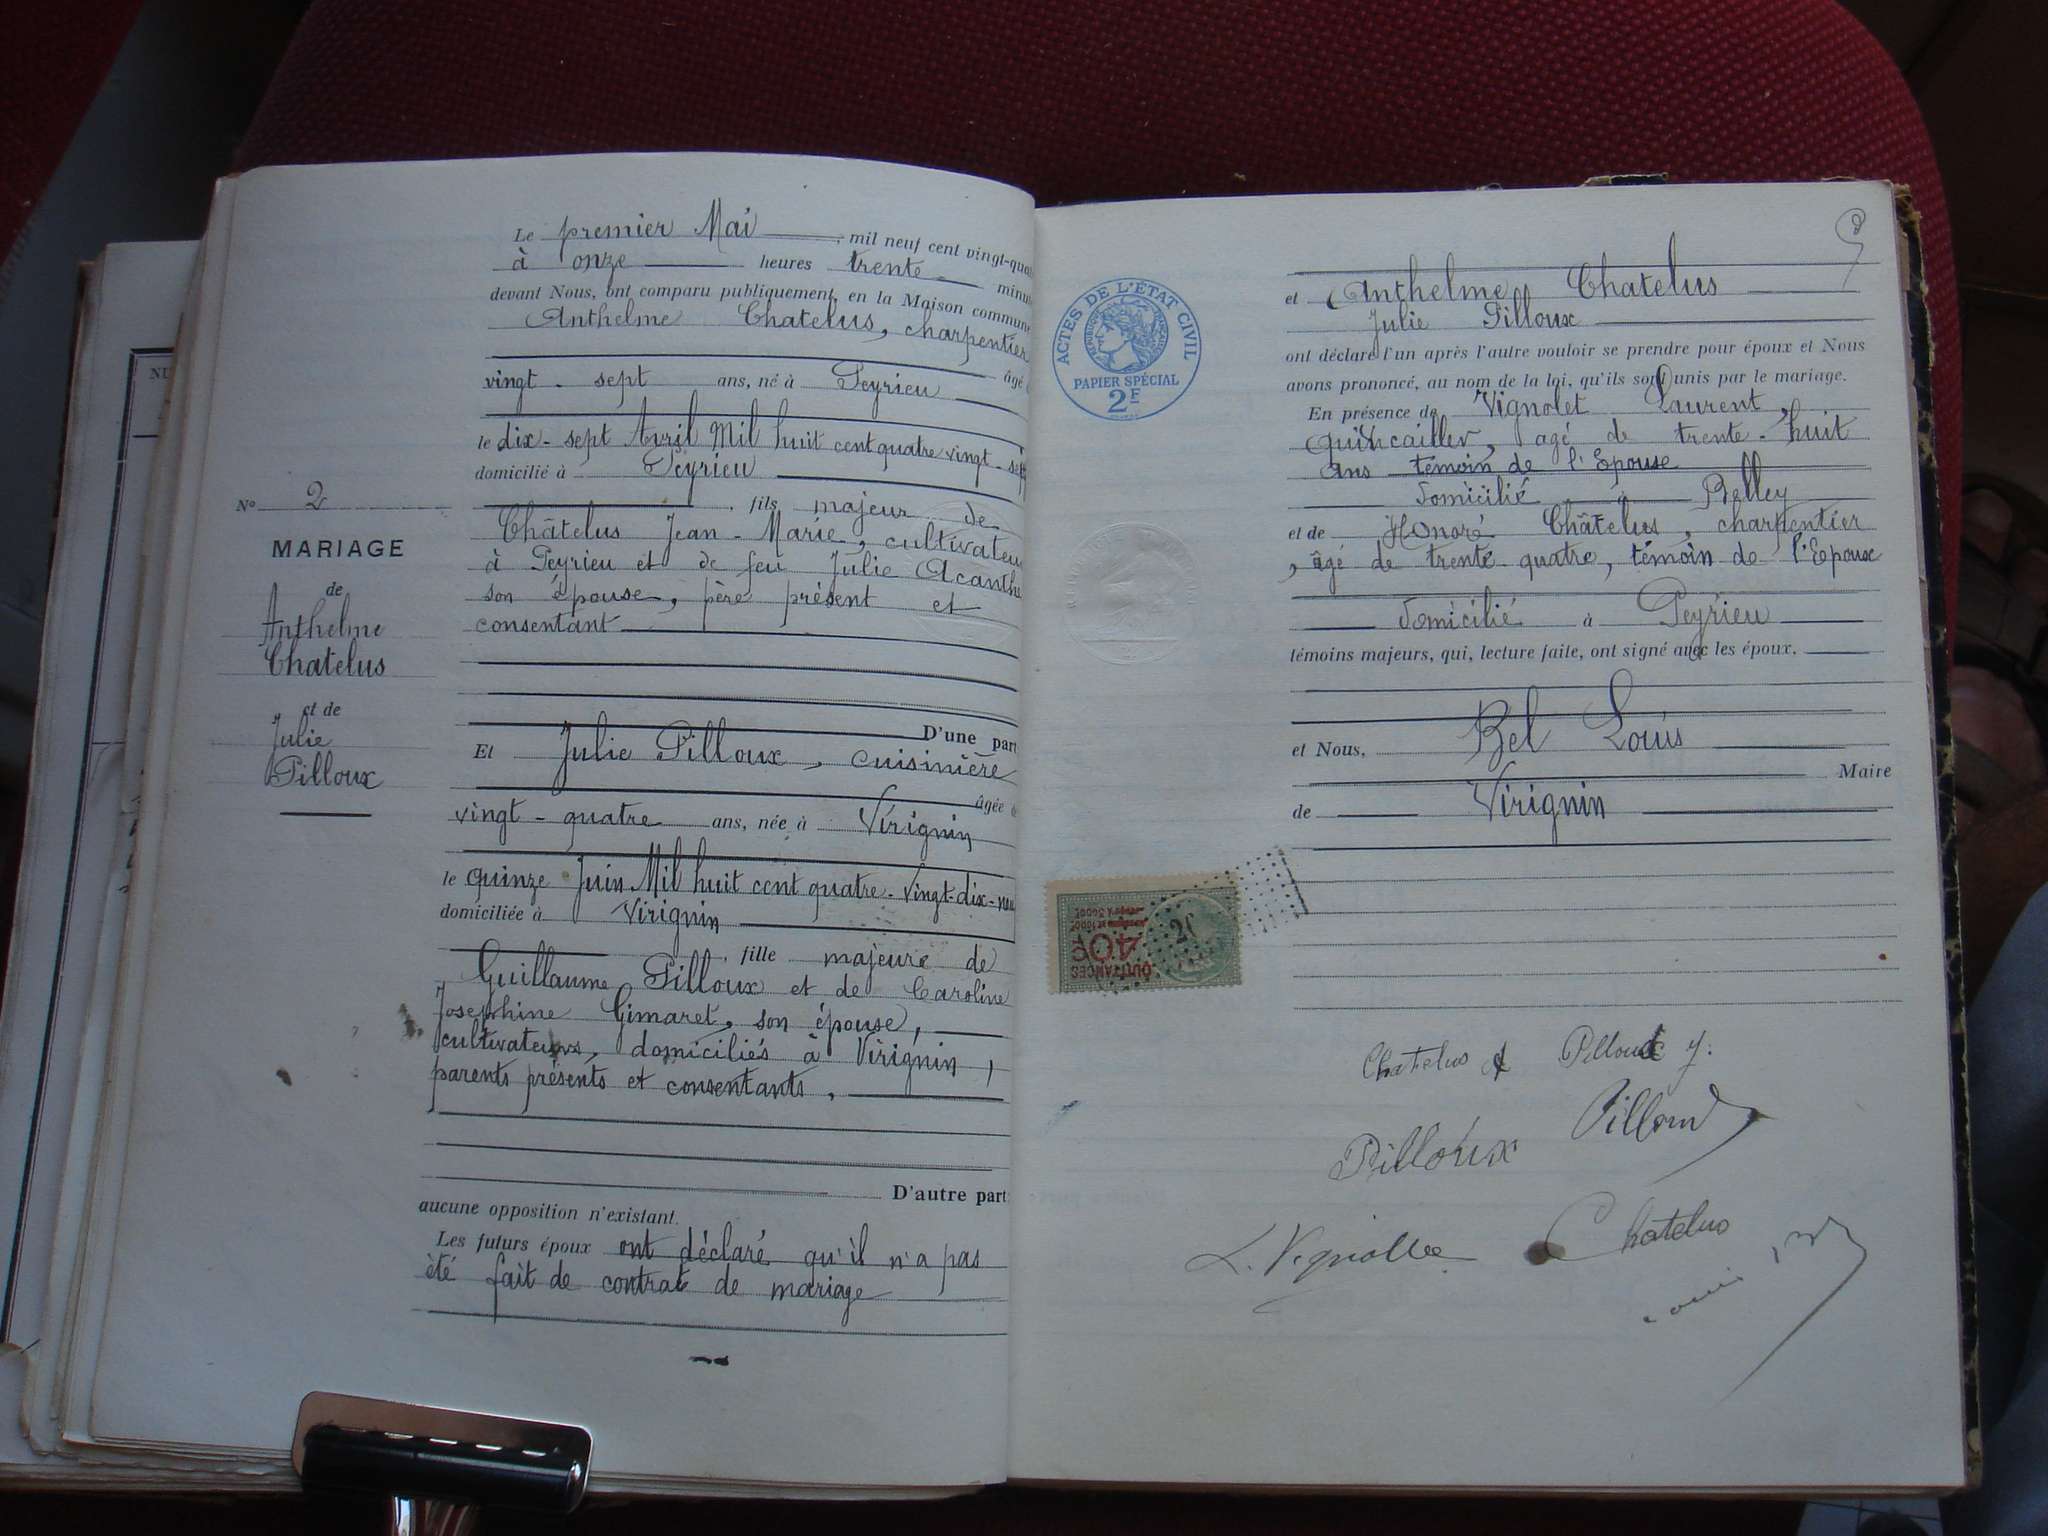 Le premier Mai, mil neuf cent vingt-qua
à onze heures trente minu
devant Nous, ont comparu publiquement, en la Maison commune
Anthelme Chatelus, charpentier
âgé
vingt-sept ans, né à Peyrieu
le dix-sept Avril Mil huit cent quatre vingt-sei
domicilié à Peyrieu
fils majeur de
Châtelus Jean-Marie, cultivateu
à Peyrieu et de feu Julie Acanthe
son épouse, père présent et
consentant
D'une part
Et Julie Pilloux, cuisinière
âgée
vingt-quatre ans, née à Virignin
le quinze Juin Mil huit cent quatre-vingt-dix-neu
domiciliée à Virignin
fille majeure de
Guillaume Pilloux et de Caroline
Josephine Gimaret, son épouse,
cultivateurs, domiciliés à Virignin,
parents présents et consentants,
D'autre part:
aucune opposition n'existant.
Les futurs époux ont déclaré qu'il n'a pas
été fait de contrat de mariage
No 2
MARIAGE
de
Anthelme
Chatelus
et de
Julie
Pilloux
NU
ACTES DE L'ÉTAT CIVIL
RÉPUBLIQUE FRANÇAISE
PAPIER SPÉCIAL
2F
et Anthelme Chatelus
Julie Pilloux
ont déclaré l'un après l'autre vouloir se prendre pour époux et Nous
avons prononcé, au nom de la loi, qu'ils sont unis par le mariage.
En présence de Vignolet Laurent,
quincailler, agé de trente-huit
ans témoin de l'Epouse
domicilié à Belley
et de Honoré Châtelus, charpentier
, âgé de trente quatre, témoin de l'Epoux
domicilié à Peyrieu
témoins majeurs, qui, lecture faite, ont signé avec les époux.
et Nous, Bel Louis
Maire
de Virignin
QUITTANCES
40c
20
Chatelus A Pilloux J.
Pilloux Pilloux
L. Vignollet Chatelus
Louis Bel